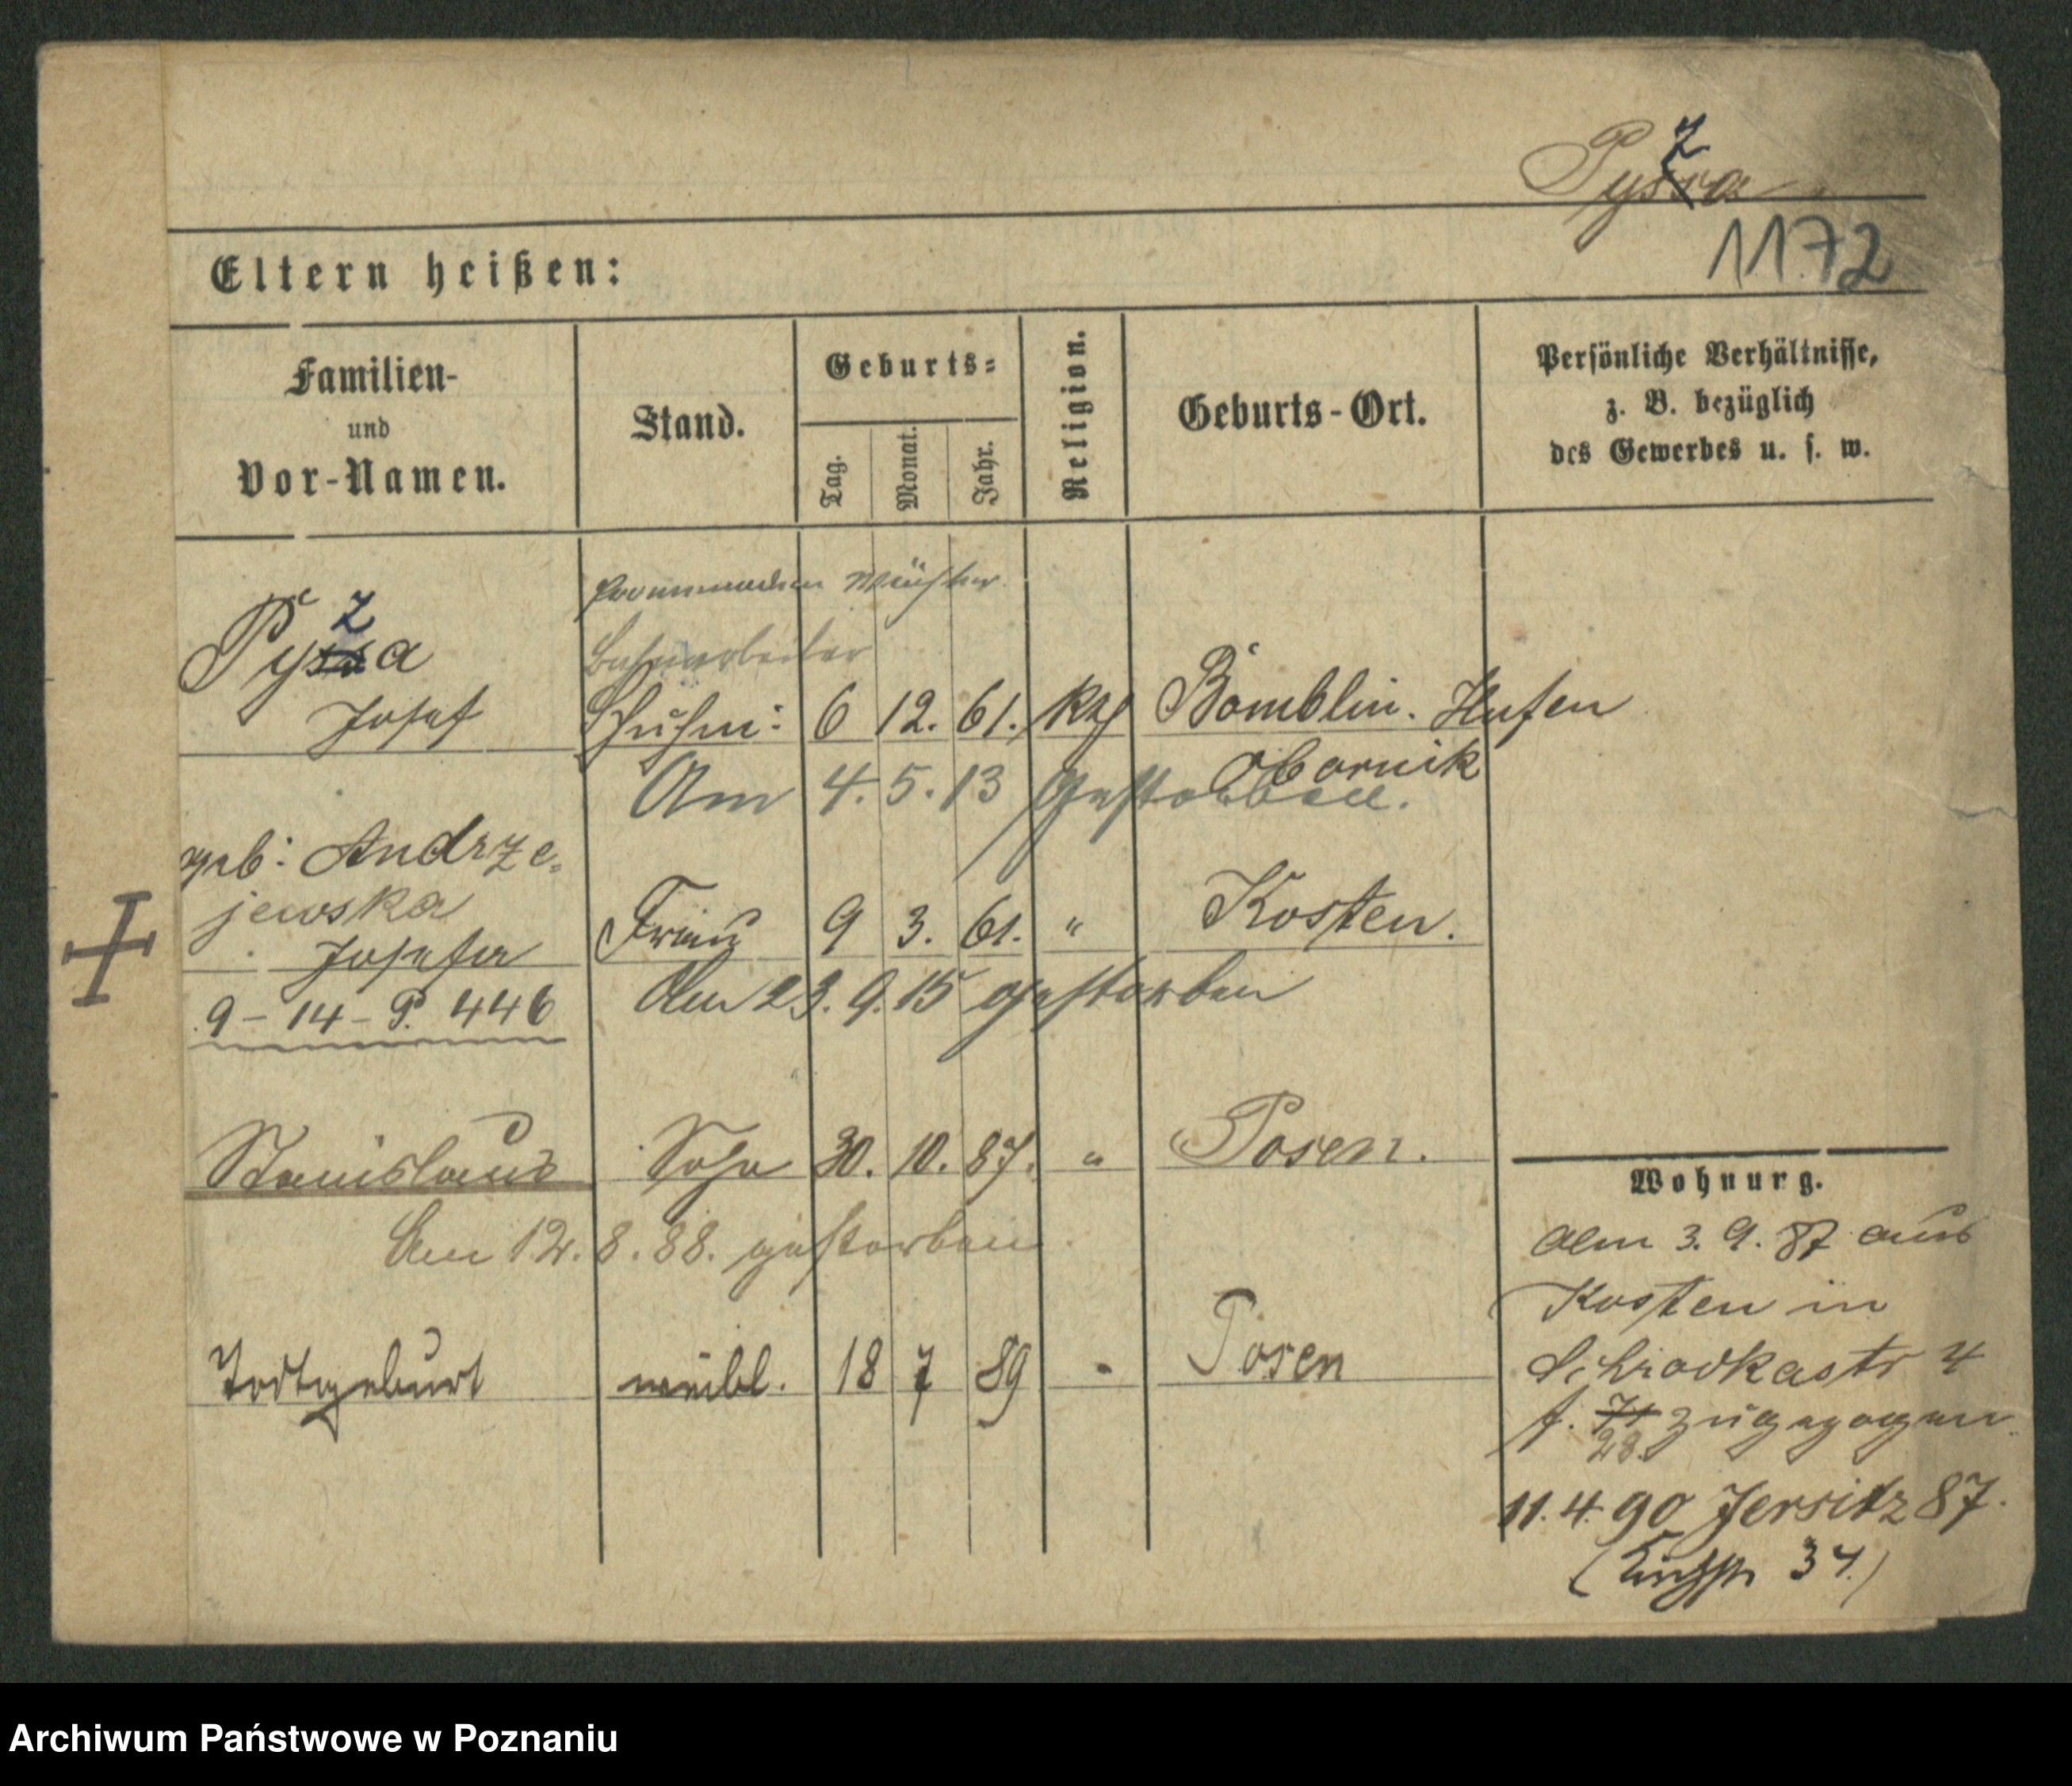 Pyzra
1172
Eltern heißen:
Familien-
und
Vor-Namen.
Stand.
Geburts-
Tag.
Monat.
Jahr.
Religion.
Geburts-Ort.
Persönliche Verhältnisse,
z. B. bezüglich
des Gewerbes u. s. w.
Wächter
Bahnarbeiter
Pyza
Josef
6 12. 61. kth Bomblin. Hufen
Obornik
Am 4. 5. 13 gestorben.
geb: Andrze-
jewska
Josefa Frau 9 3. 61. " Kosten.
9 - 14 - P. 446
Am 23. 9. 15 gestorben
Stanislaus Sohn 30. 10. 87. " Posen.
Am 12. 8. 88. gestorben
Todtgeburt weibl. 18 7 89 " Posen
Wohnung.
Am 3. 9. 87 aus
Kosten in
Schrodkastr 4
f. 71 zugezogen.
28.
11. 4. 90 Jersitz 87.
34.)
Archiwum Państwowe w Poznaniu